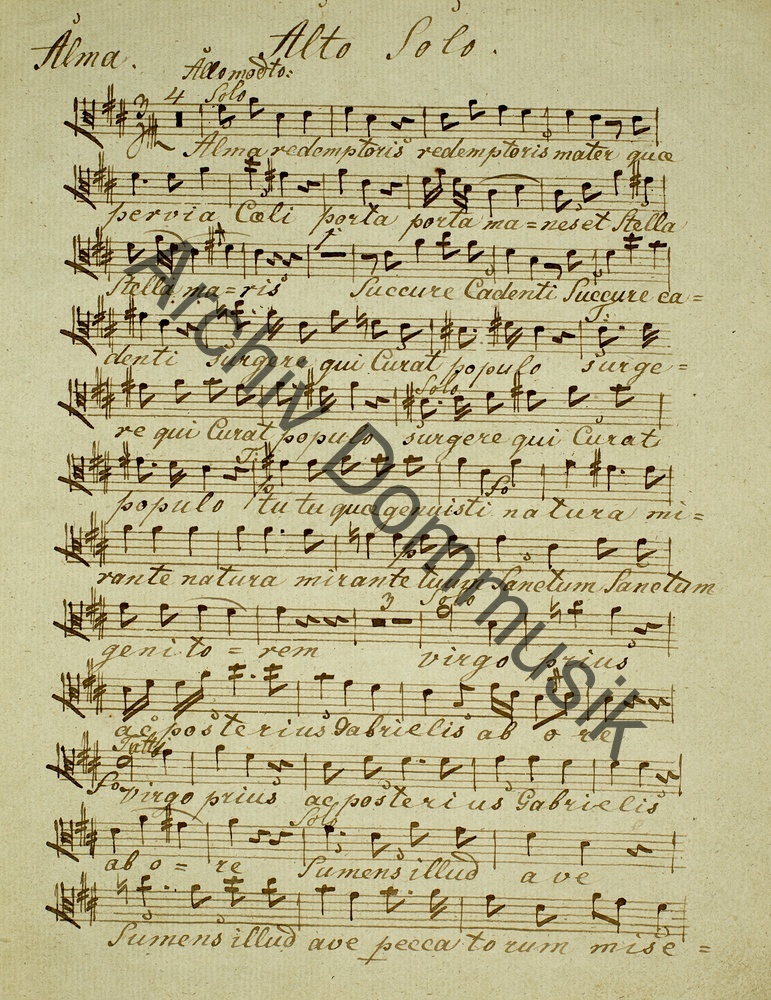 Alma. Alto Solo.
Allo modto:
4 Solo
Alma redemptoris redemptoris mater quae
pervia Coeli porta porta ma=nes et Stella
1
Stella ma=ris Succure Cadenti Succure ca=
T:
denti surgere qui Curat populo surge=
Solo
re qui Curat populo surgere qui Curat
T:
po fo
populo tu tu quae genuisti natura mi=
po
rante natura mirante tuum Sanctum Sanctum
3 Solo
genito=rem virgo prius
ac posterius Gabrielis ab o re
Tutti
fo virgo prius ac posteri us Gabrielis
Solo
ab o = re Sumens illud a ve
Sumens illud ave pecca to rum mise=
Archiv Dommusik